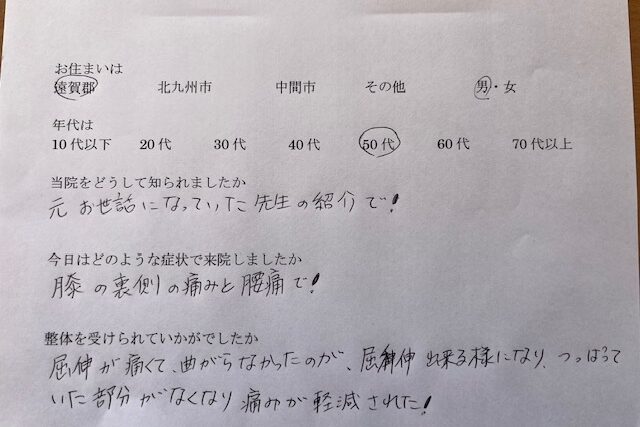 お住まいは
遠賀郡 北九州市 中間市 その他 男・女
年代は
10代以下 20代 30代 40代 50代 60代 70代以上
当院をどうして知られましたか
元 お世話になっていた先生の紹介で!
今日はどのような症状で来院しましたか
膝の裏側の痛みと腰痛で!
整体を受けられていかがでしたか
屈伸が痛くて、曲がらなかったのが、屈伸出来る様になり、つっぱって
いた部分がなくなり痛みが軽減された!